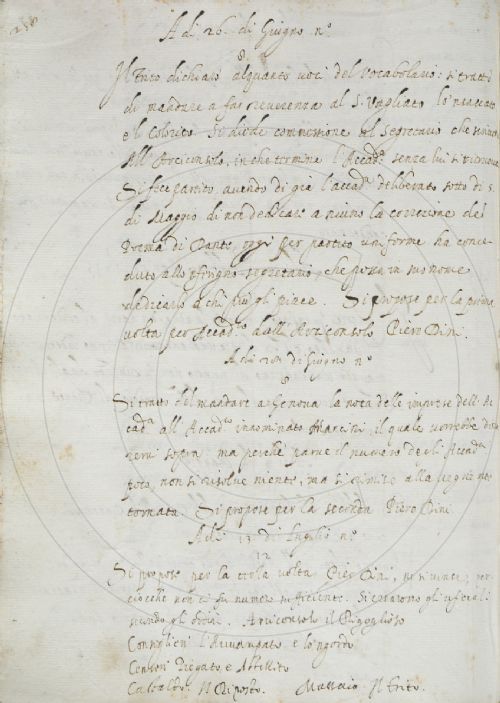 Adi 26. di Giugno n.º
8.
Il Trito dichiarò alquante voci del Vocabolario: si trattò
di mandare a far reverenza al S. Vagliato lo 'nsaccato
e 'l Colorito. Si diede commessione al Segretario che scriva
All'Arciconsolo, in che termine l'Accad.ª senza lui si ritrova
Si fece partito avendo di già l'accad.ª deliberato sotto dì 5.
di Maggio di non dedicare a niuno la correzione del
Poema di Dante, oggi per partito uniforme ha conce-
duto allo 'nferigno segretario, che possa in suo nome
dedicarlo a chi più gli piace. Si propose per la prima
volta per Accad.co dall'Arciconsolo Piero Dini.
Adi di Giugno n.º
8
Si trattò del mandare a Genova la nota delle imprese dell'Ac-
cad.ª all'Accad.co innominato Mancini, il quale vorrebbe
sopra ma perchè parve il numero degli Accad.ci
poco, non si risolvè niente, ma si rimise alla vegnente
tornata. Si propose per la seconda Piero Dini.
Adi 13 di Luglio n.º
12
Si propose per la terza volta Pier Dini, non si vinse, per-
ciocchè non ci fu numero sufficiente. Si crearono gli ufficiali
secondo gli ordini. Arciconsolo il Rigoglioso
Consiglieri l'Avvampato e lo 'ngordo
Censori Piegato e Affitto
Castaldo. Il Riposto. Massaio Il Trito.